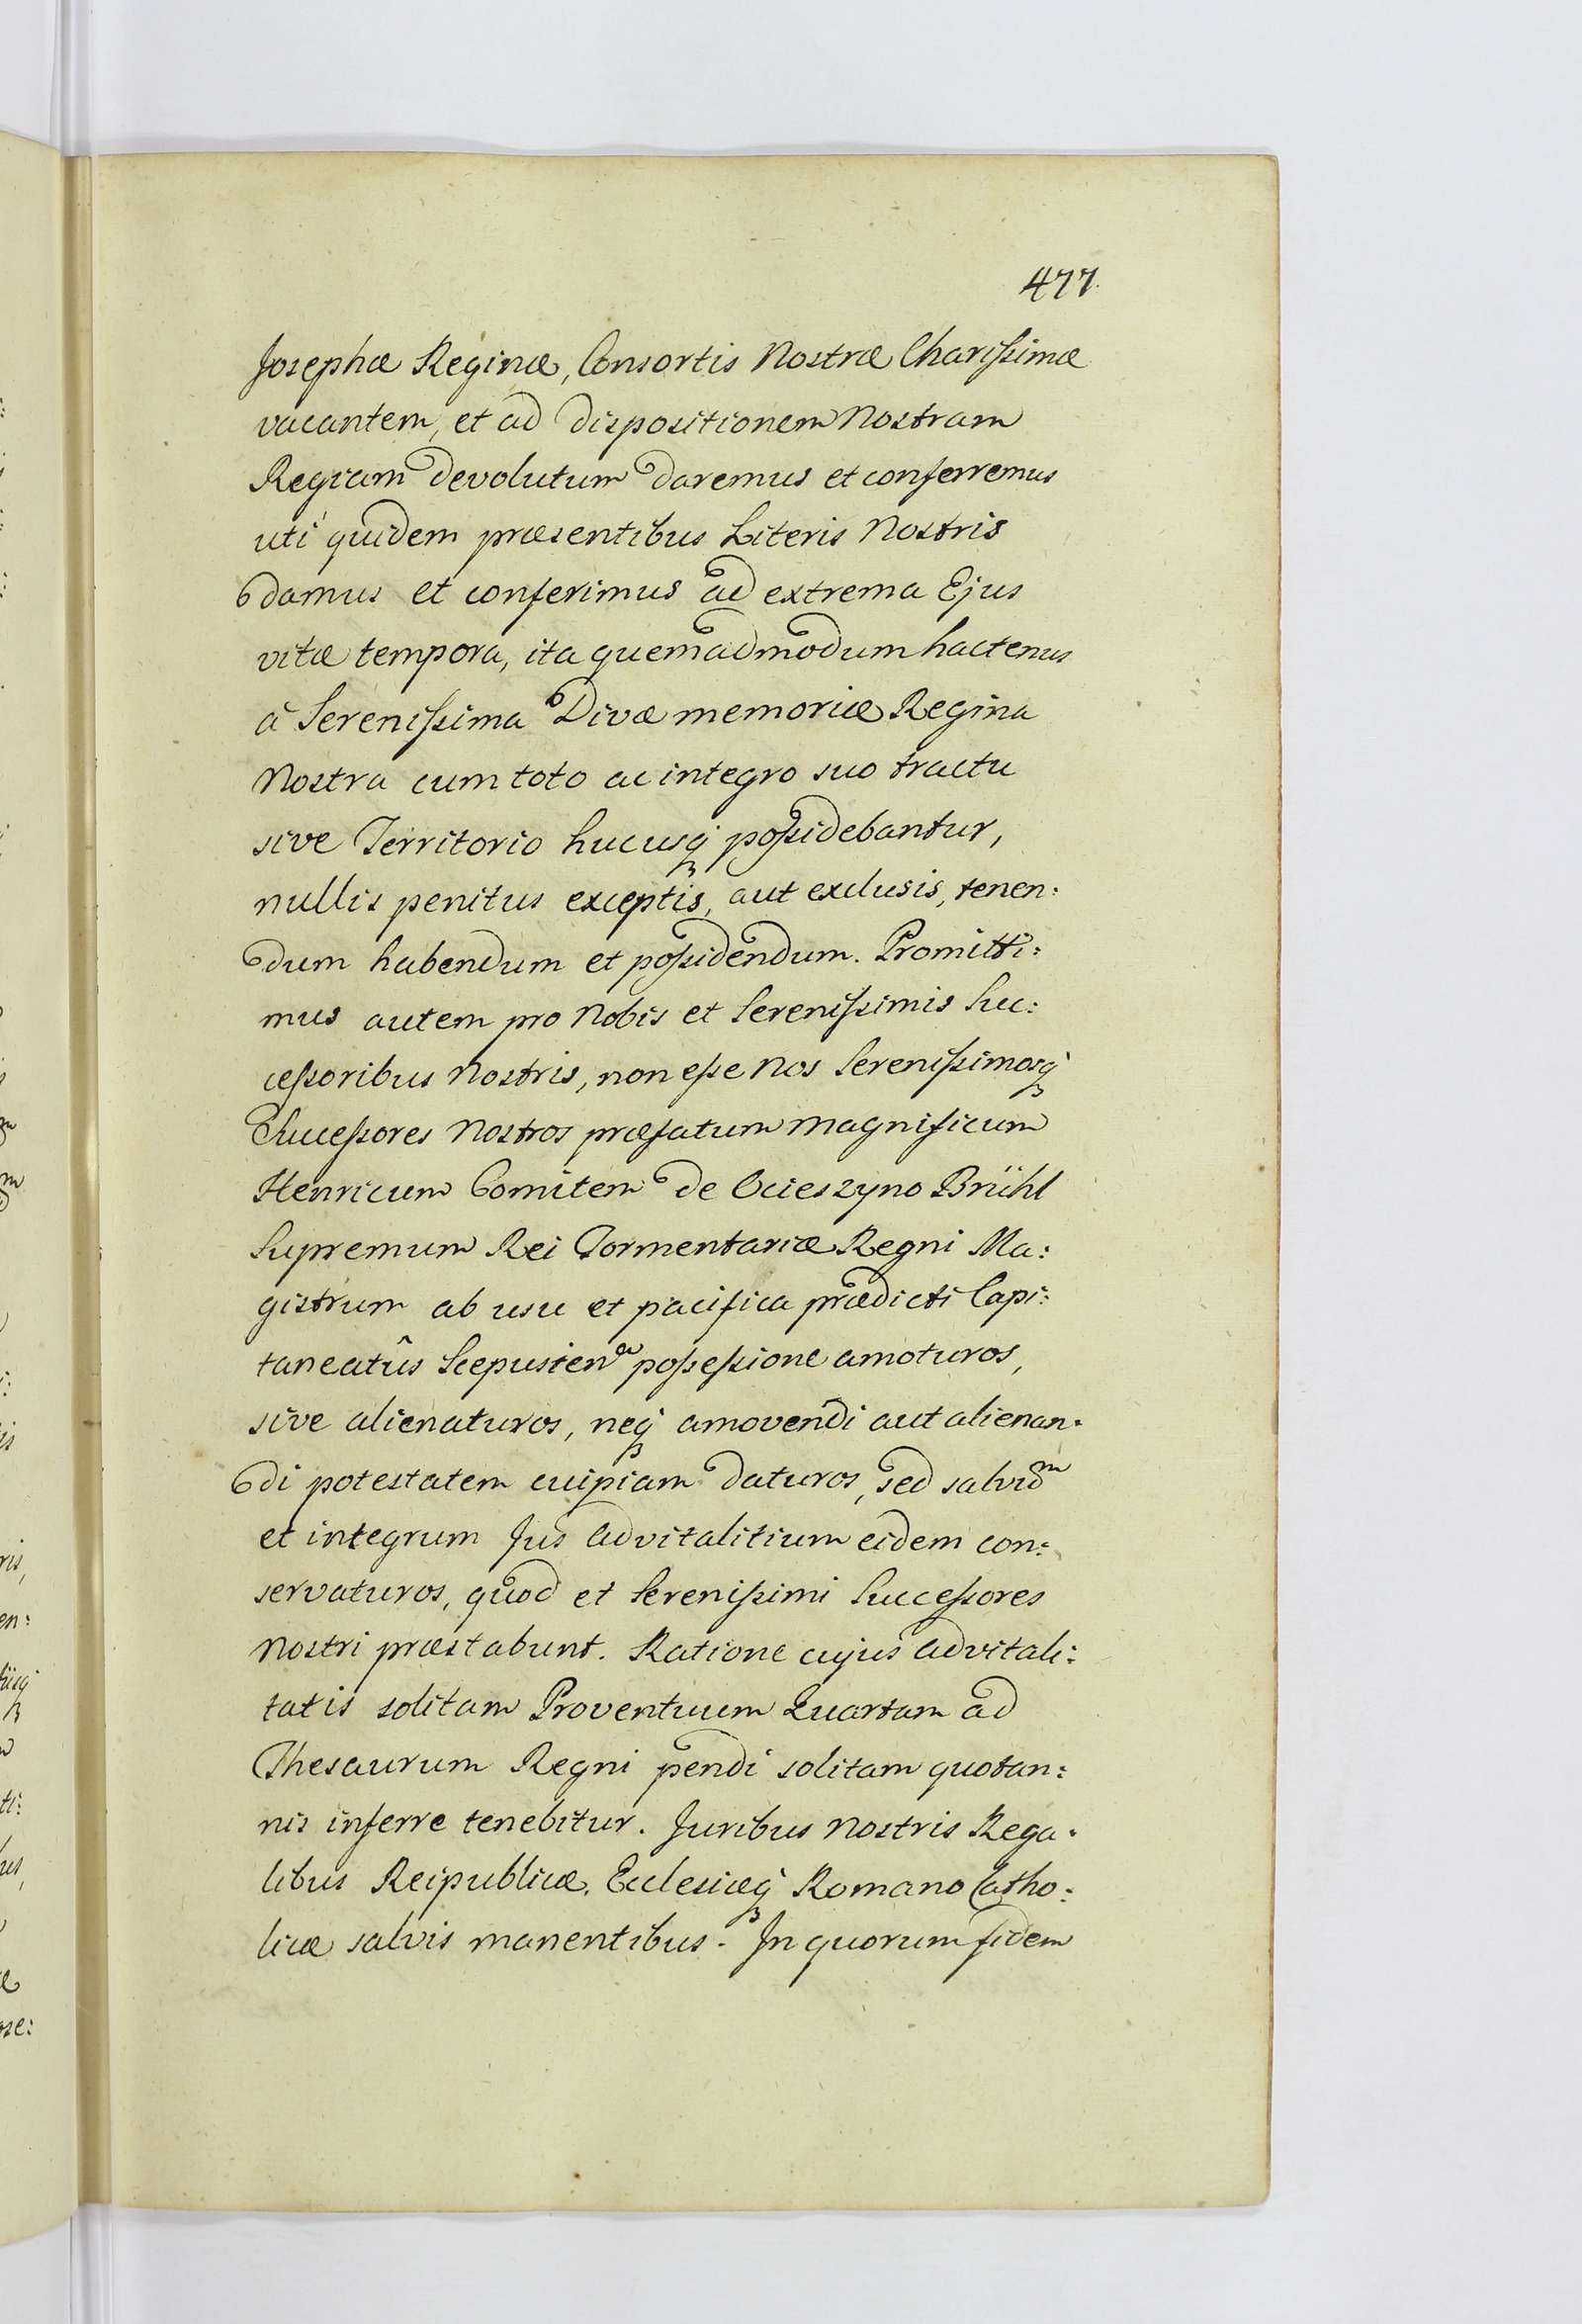 477.
Josephæ Reginæ, Consortis Nostræ Charissimæ
vacantem, et ad dispositionem Nostram
Regiam devolutum daremus et conferremus
uti quidem præsentibus Literis Nostris
damus et conferimus ad extrema Ejus
vitæ tempora, ita quemadmodum hactenus
â Serenissima Divæ memoriæ Regina
Nostra cum toto ac integro suo tractu
sive Territorio hucusq́ꝫ possidebantur,
nullis penitus exceptis, aut exclusis, tenen:
dum habendum et possidendum. Promitti:
mus autem pro Nobis et Serenissimis Suc:
cessoribus Nostris, non esse Nos Serenissimosq́ꝫ
Successores Nostros præfatum Magnificum
Henricum Comitem de Ocieszyno Brühl
Supremum Rei Tormentariæ Regni Ma:
gistrum ab usu et pacifica prædicti Capi:
taneatûs Scepusien possessione amoturos,
sive alienaturos, neq́ꝫ amovendi aut alienan:
di potestatem cuipiam daturos, sed salvũm
et integrum Jus Advitalitium eidem con:
servaturos, quod et Serenissimi Successores
Nostri præstabunt. Ratione cujus Advitali:
tatis solitam Proventuum Quartam ad
Thesaurum Regni pendi solitam quotan:
nis inferre tenebitur. Juribus Nostris Rega:
libus Reipublicæ, Ecclesiæq́ꝫ Romano Catho:
licæ salvis manentibus. In quorum fidem